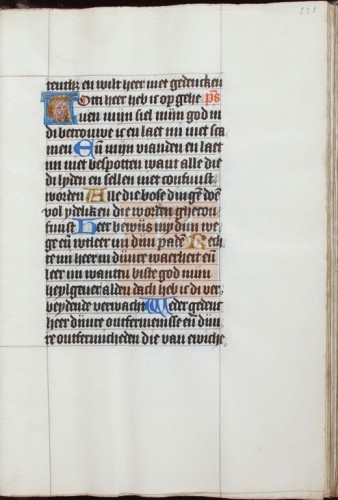 teuth; en wilt heer niet gedencken
Tom heer heb ic op gehe ps
uen mijn siel mijn god in
di betrouwe ic en laet mi niet sca
men Eñ mijn vianden en laet
mi niet bespotten want alle die
di lyden en sellen niet confuust
worden Alle die bose dingē doē
vol ydeliken die worden ghecon
fuust Heer bewijs my dijn we
ge en wil leer mi dijn padē Rech
te mi heer in dijnre waerheit eñ
leer mi wantu biste god mijn
heylgeuer al den dach heb ic di ver
beydende verwacht Weder gedenc
heer dijnre ontfermenisse eñ dijn
re ontfermicheden die van ewiche